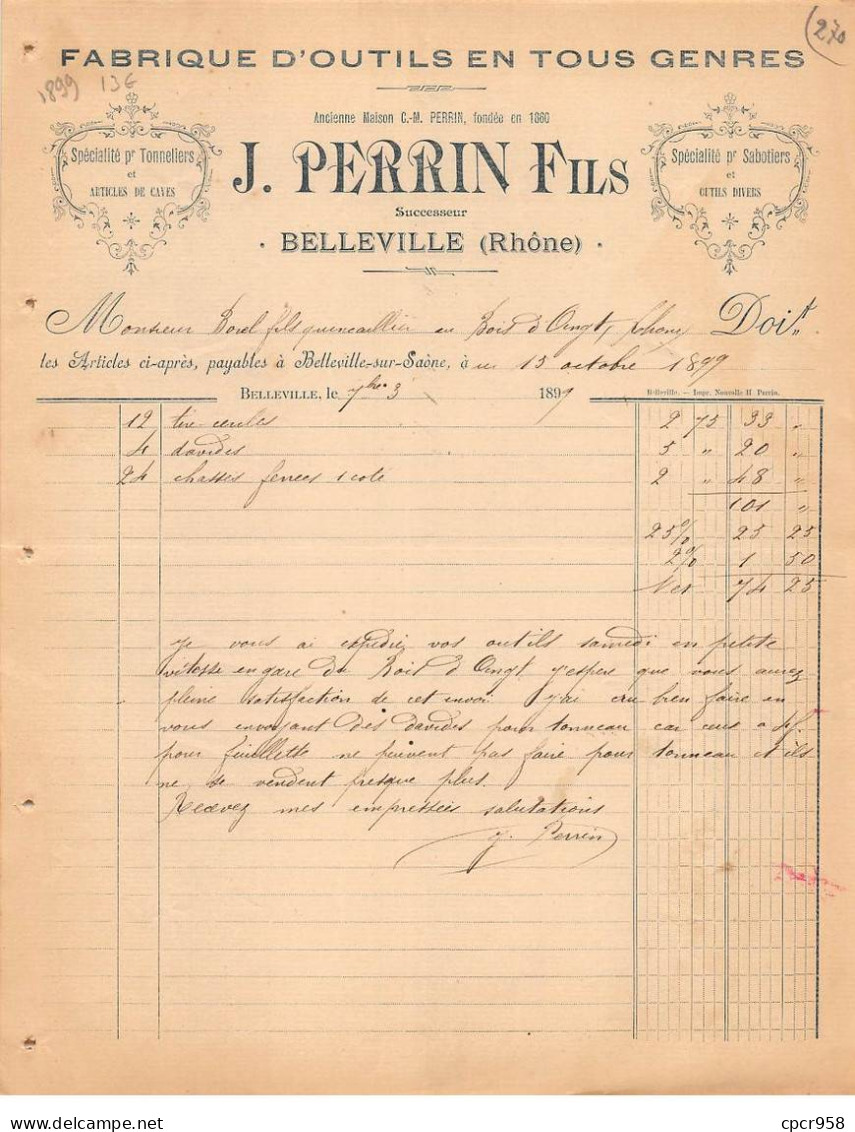 (270
FABRIQUE D'OUTILS EN TOUS GENRES
1899 13€
Ancienne Maison C.-M. PERRIN, fondée en 1860
Spécialité pr Tonneliers
et
ARTICLES DE CAVES
J. PERRIN FILS
Spécialité pr Sabotiers
et
OUTILS DIVERS
Successeur
BELLEVILLE (Rhône)
Monsieur Borel fils quincaillier au Bois d'Oingt, Rhône Doit
les Articles ci-après, payables à Belleville-sur-Saône, à au 15 octobre 1899
BELLEVILLE, le 7bre 3 1899 Belleville. — Impr. Nouvelle H Perrin.
12 tire-cercles 2 75 33 "
4 davides 5 " 20 "
24 chasses ferrées 1 coté 2 " 48 "
101 "
25% 25 25
2% 1 50
Net 74 25
Je vous ai expédiez vos outils samedi en petite
vitesse en gare du Bois d'Oingt j'espere que vous aurez
pleine satisfaction de cet envoi. j'ai cru bien faire en
vous envoyant des davides pour tonneau car ceus a 4f.
pour feuillette ne peuvent pas faire pour tonneau et ils
ne se vendent presque plus.
Recevez mes empressées salutations
J. Perrin
delcampe.net
cpcr958